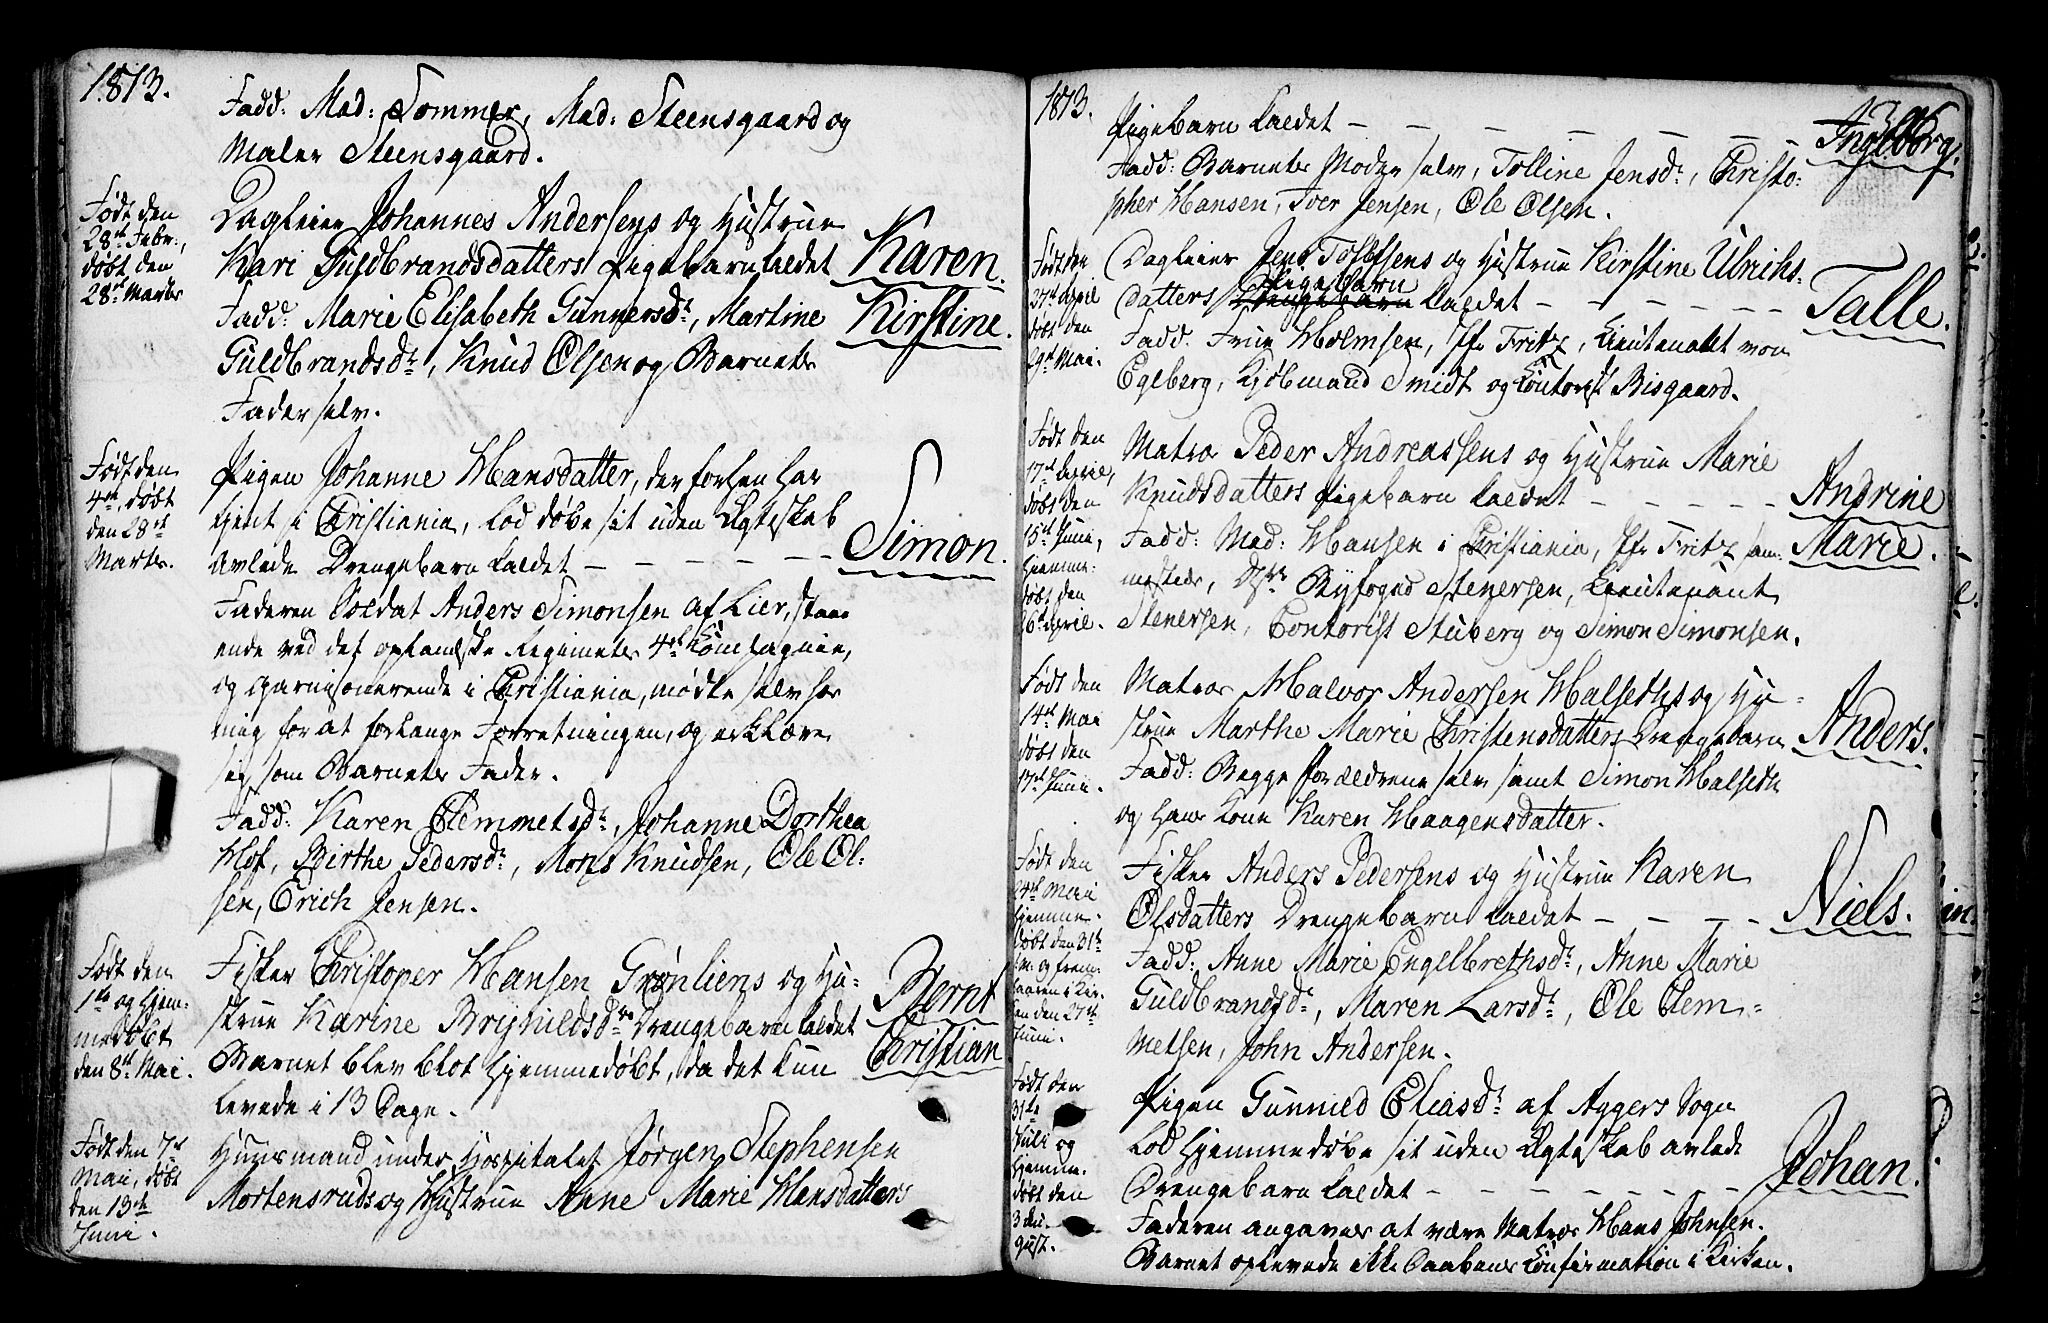 1813.
Fadd: Mad: Sommer, Mad: Steensgaard og
Maler Steensgaard.
Født den
28de Febr:,
døbt den
28de Marts
Dagleier Johannes Andersens og Hustrue
Kari Guldbrandsdatters Pigebarn kaldet
Karen
Kirstine.
Fadd: Marie Elisabeth Gunnersdr, Martine
Guldbrandsdr, Knud Olsen og Barnets
Fader selv.
Født den
4de, døbt
den 28de
Marts.
Pigen Johanne Hansdatter, der forhen har
tjent i Christiania, lod døbe sit uden Ægteskab
avlede Drengebarn kaldet – – – – – –
Simon.
Faderen Soldat Anders Simonsen af Lier, staa-
ende ved det oplandske Regiments 4de Kompagnie,
og garnisonerende i Christiania, mødte selv hos
mig for at forlange Forretningen, og erklære
sig som Barnets Fader.
Fadd: Karen Clemmetsdr, Johanne Dorthea
Hof, Birthe Pedersdr, Mons Knudsen, Ole Ol:
sen, Erich Jensen.
Født den
1de og hjem:
medøbt
den 8de Mai.
Fisker Christoper Hansen Grønliens og Hu:
strue Karine Brynildsdrs Drengebarn kaldet
Bernt
Christian
Barnet blev blot hjemmedøbt, da det kun
levede i 13 Dage.
Født den 7de
Mai, døbt
den 13de
Juni.
Huusmand under Hospitalet Jørgen Stephensen
Mortensruds og Hustrue Anne Marie Hansdatters
1813.
Pigebarn kaldet – – – – – – –
Ingeborg.
Fadd: Barnets Moder selv, Tolline Jensdr, Christo:
pher Hansen, Toer Jensen, Ole Olsen.
Født den
27de April
døbt den
29de Mai.
Dagleier Jens Tollefsens og Hustrue Kirstine Ulrichs:
Pigebarn
datters Drengebarn kaldet – – – – – –
Talle.
Fadd: Frue Holmsen, Jfr Fritz, Lieutenant von
Egeberg, Kjøbmand Smidt og Contorist Bisgaard.
Født den
17de April,
døbt den
15de Juni,
hjemme:
døbt den
26de April.
Matros Peder Andreassens og Hustrue Marie
Knudsdatters Pigebarn kaldet – – – – –
Andrine
Marie.
Fadd: Mad: Hansen i Christiania, Jfr Fritz sam:
mesteds, Byfogd Stenersen, Lieutenant
Stenersen, Contorist Stuberg og Simon Simonsen.
Født den
14de Mai
døbt den
17de Juni.
Matros Halvor Andersen Halseths og Hu-
strue Marthe Marie Christensdatters Drengebarn
Anders.
Fadd: Begge Forældrene selv, samt Simon Halseth
og hans Kone Karen Haagensdatter.
Født den
24de Mai
hjemme-
døbt den 31te
s. M. og frem-
baaren i Kir-
ken den 27de
Juni.
Fisker Anders Pedersens og Hustrue Karen
Olsdatters Drengebarn kaldet – – – –
Niels.
Fadd: Anne Marie Engelbrethsdr, Anne Marie
Guldbrandsdr, Maren Larsdr, Ole Clem-
metsen, John Andersen.
Født den
31te
Juli og
hjemme-
døbt den
3 Au-
gust.
Pigen Gunnild Eliasdr af Aggers Sogn
lod hjemmedøbe sit uden Ægteskab avlede
Drengebarn kaldet – – – – – – –
Johan.
Faderen angaves at være Matros Hans Johnsen.
Barnet oplevede ikke Daabens Confirmation i Kirken.